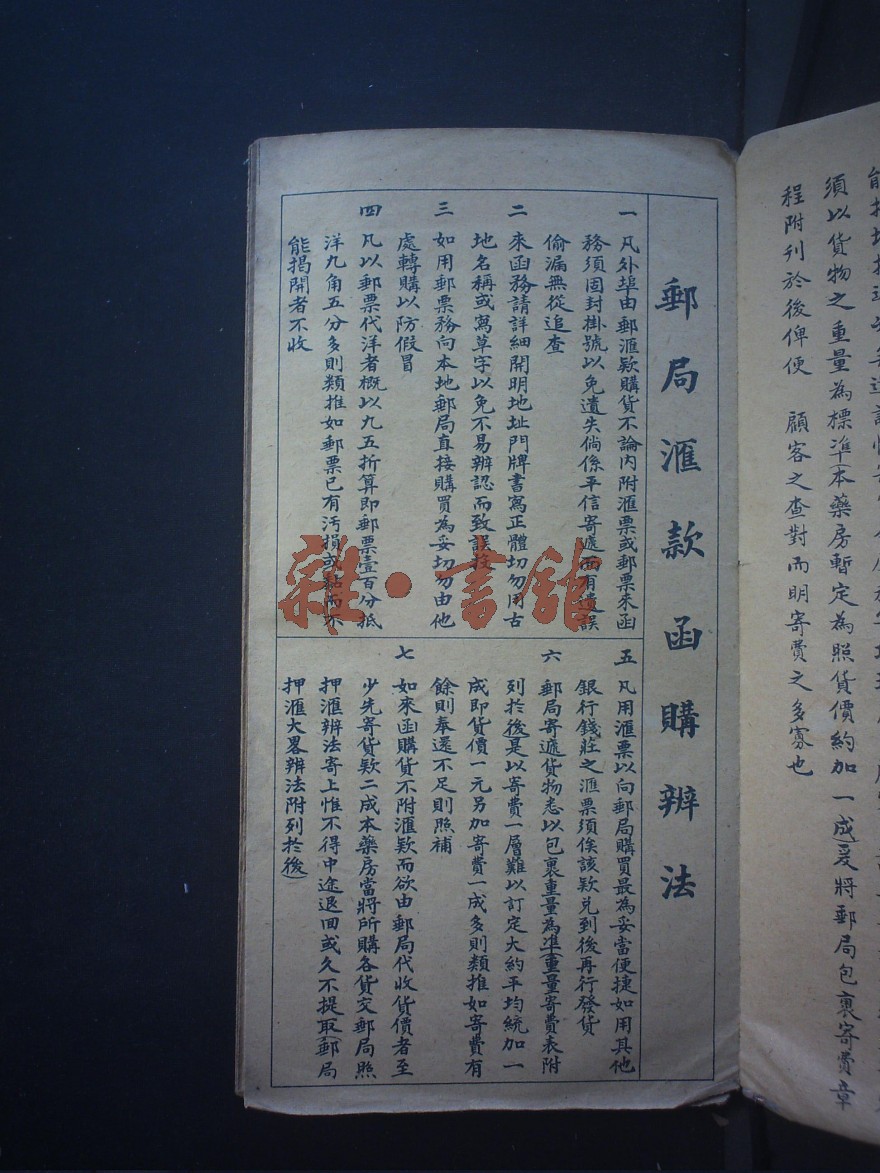 須以貨物之重量為標準(本藥房暫定為照貨價約加一成)爰將郵局包裹寄費章
程附刊於後俾便 顧客之查對而明寄費之多寡也
郵局滙款函購辦法
一 凡外埠由郵滙欵購貨不論內附滙票或郵票來函
務須固封掛號以免遺失倘係平信寄遞而有遺誤
偷漏無從追查
二 來函務請詳細開明地址門牌書寫正體切勿用古
地名稱或寫草字以免不易辦認而致誤投
三 如用郵票務向本地郵局直接購買為妥切勿由他
處轉購以防假冒
四 凡以郵票代洋者概以九五折算即郵票壹百分抵
洋九角五分多則類推如郵票已有汚損或黏而不
能揭開者不收
五 凡用滙票以向郵局購買最為妥當便捷如用其他
銀行錢莊之滙票須俟該欵兑到後再行發貨
六 郵局寄遞貨物悉以包裹重量為準(重量寄費表附
列於後)是以寄費一層難以訂定大約平均統加一
成即貨價一元另加寄費一成多則類推如寄費有
餘則奉還不足則照補
七 如來函購貨不附滙欵而欲由郵局代收貨價者至
少先寄貨欵二成本藥房當將所購各貨交郵局照
押滙辦法寄上惟不得中途退回或久不提取(郵局
押滙大畧辦法附列於後)
雜·書館